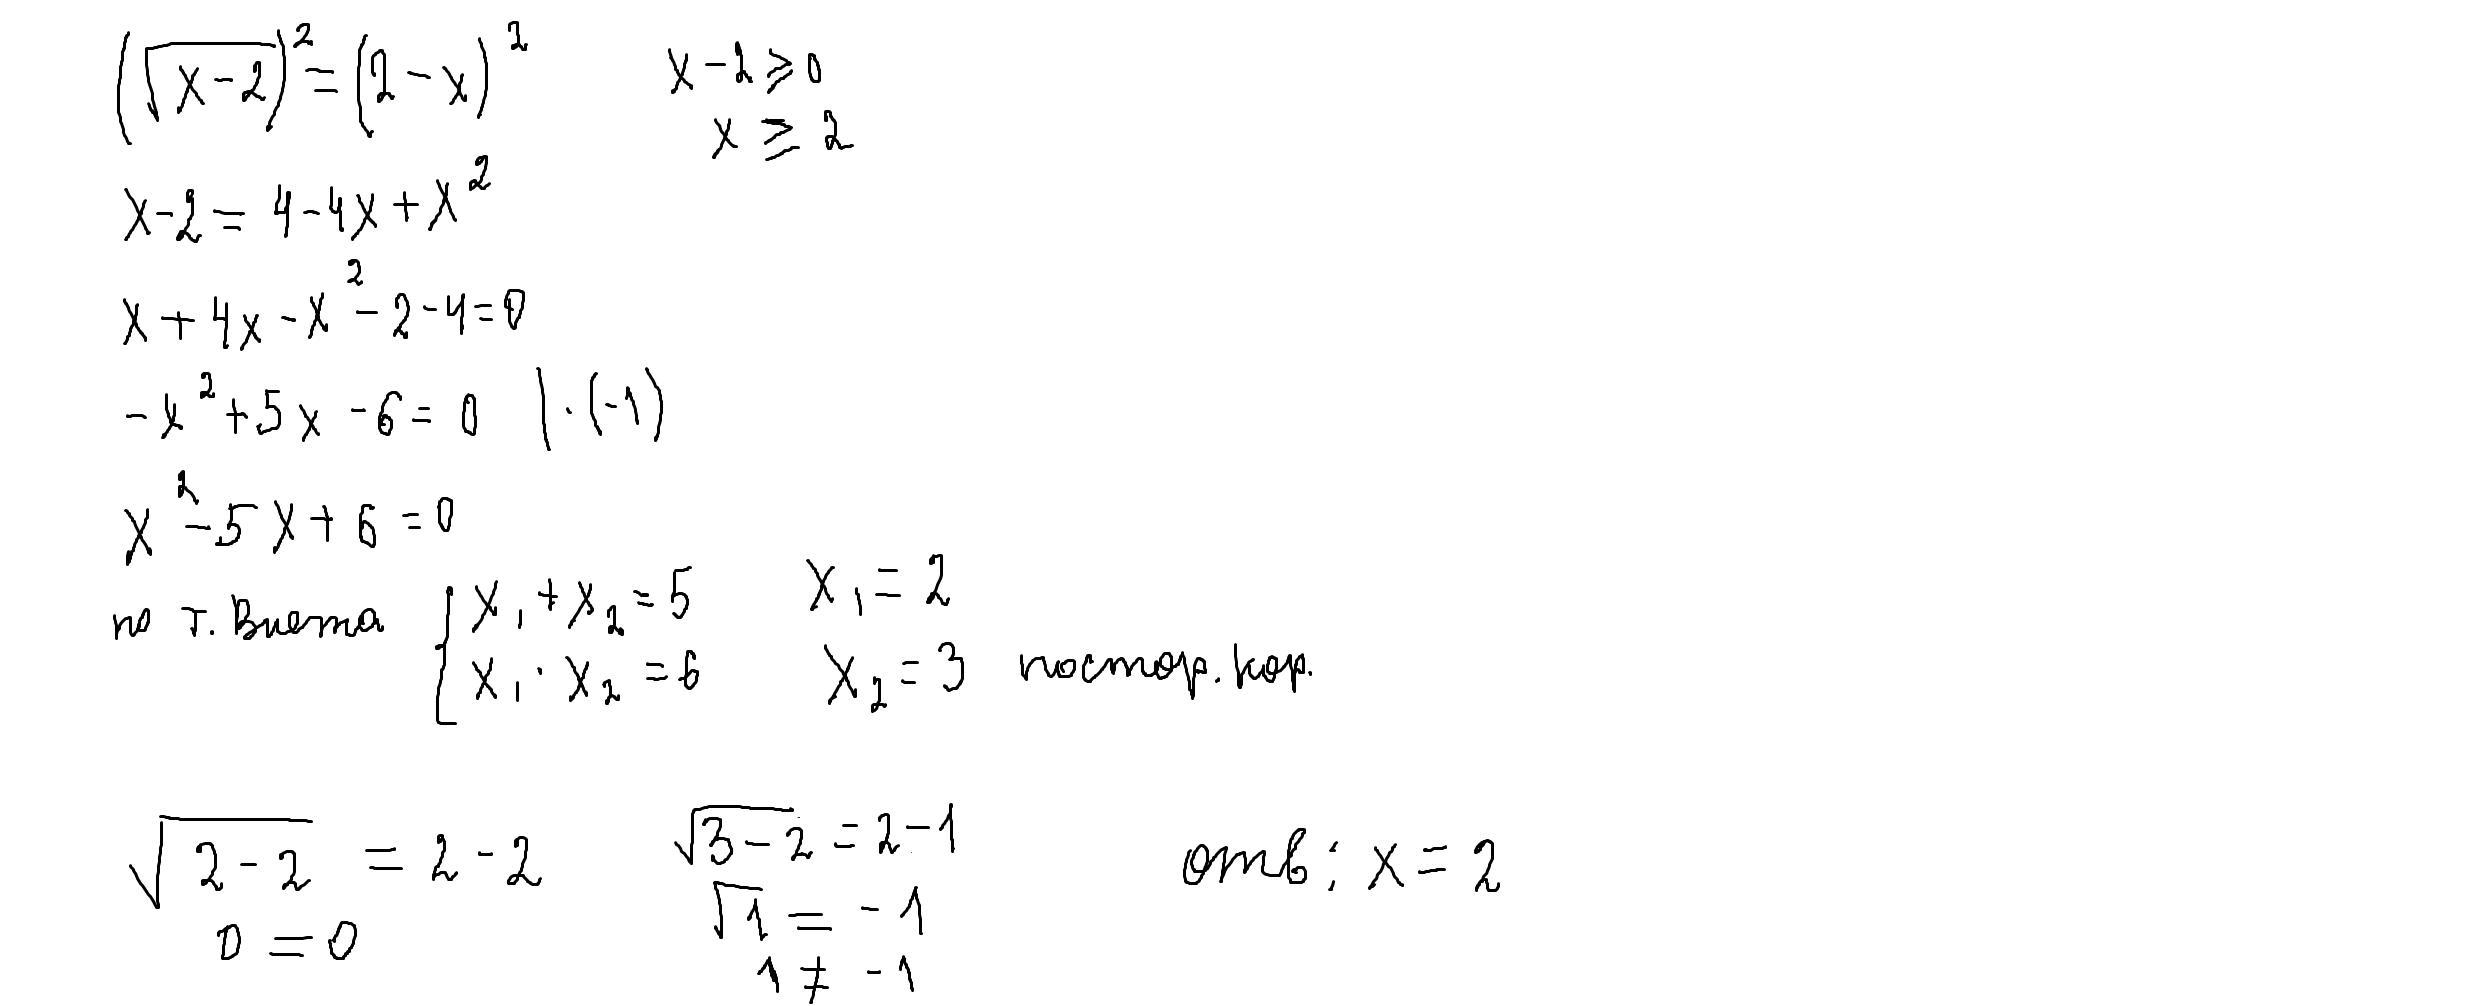 (√(x-2))² = (2-x)²    x-2 ⩾ 0
x ⩾ 2
x-2 = 4-4x+x²
x+4x-x²-2-4=0
-x²+5x-6=0 |·(-1)
x²-5x+6=0
по т. Виета { x₁+x₂=5    x₁=2
x₁·x₂=6    x₂=3 постор. кор.
√(2-2) = 2-2    √(3-2) = 2-1    отв: x=2
0=0    √1 = -1
1 ≠ -1